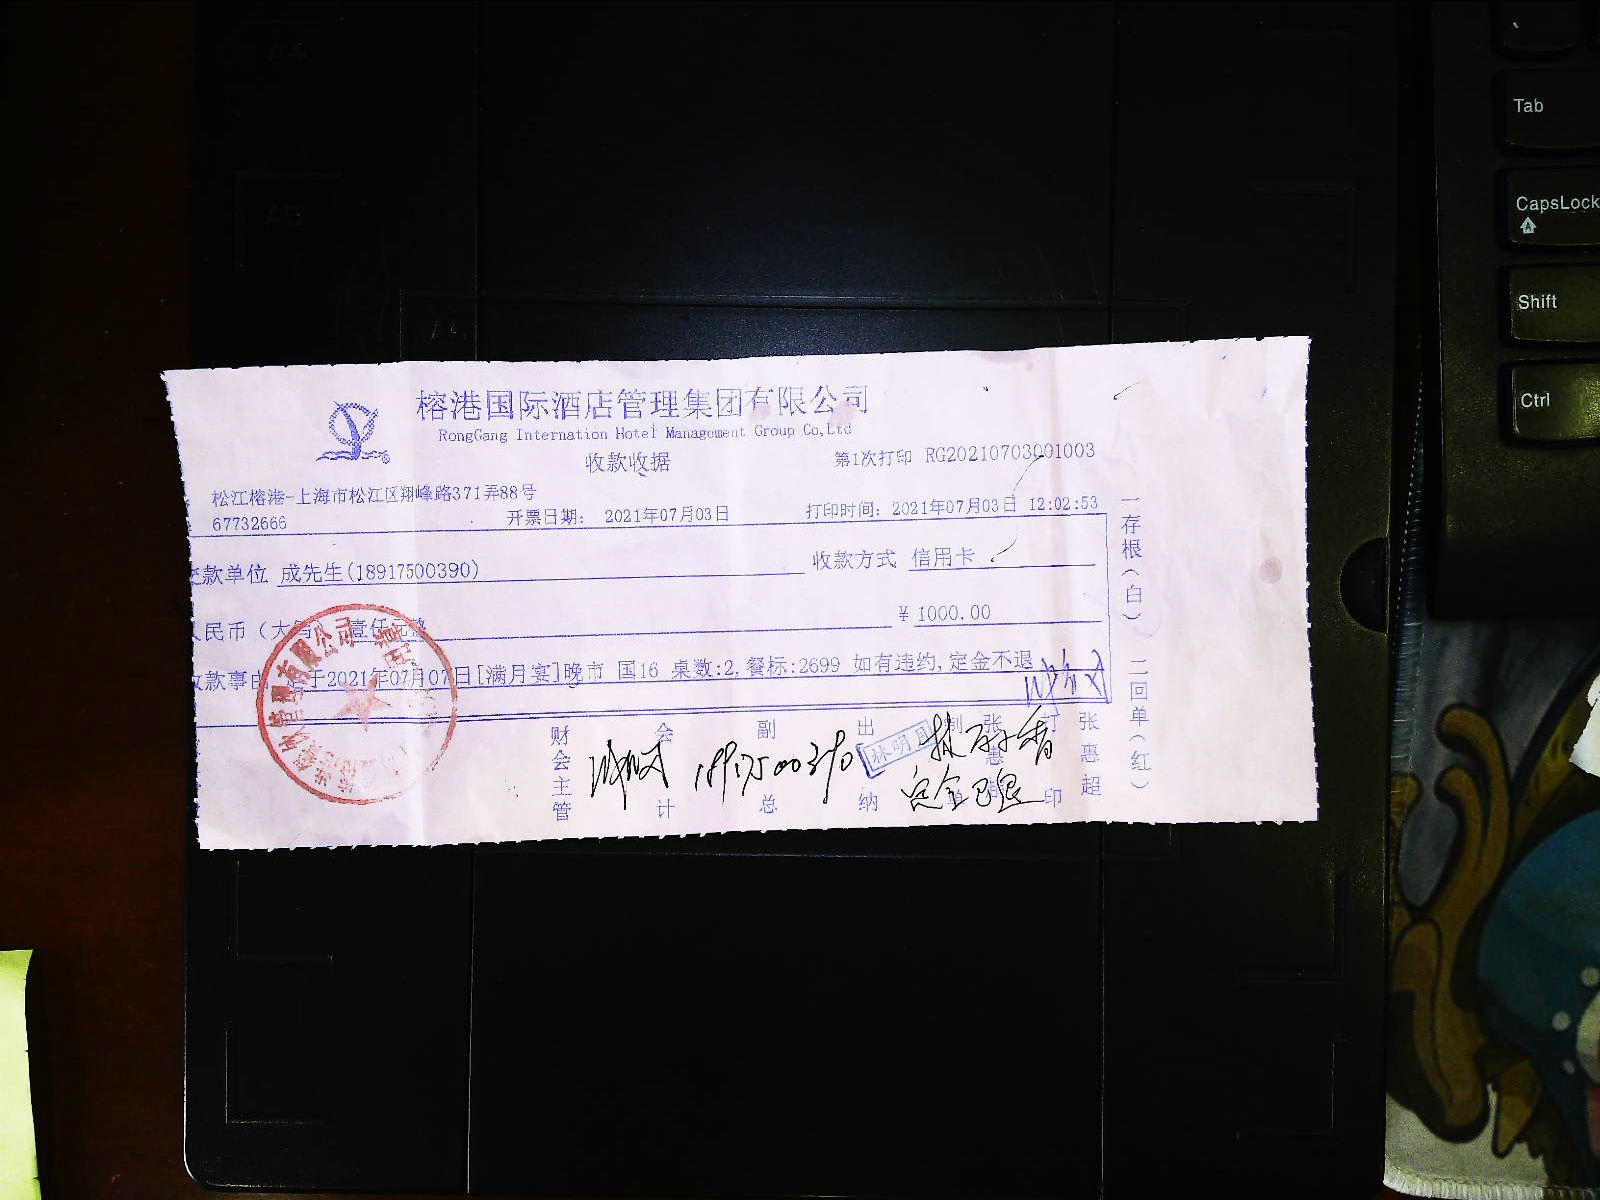 榕港国际酒店管理集团有限公司
RongGang Internation Hotel Management Group Co,Ltd
收款收据
第1次打印 RG20210703001003
松江榕港-上海市松江区翔峰路371弄88号
67732666
开票日期: 2021年07月03日
打印时间: 2021年07月03日 12:02:53
款单位 成先生(18917500390)
收款方式 信用卡
民币(大写) 壹仟元整
¥ 1000.00
款事由 定于2021年07月07日[满月宴]晚市 国16 桌数:2,餐标:2699 如有违约,定金不退
财会主管
会计
副总
出纳
制单
张惠超
打印
张惠超
林明月
18917500390
定金已退
一存根(白)
二回单(红)
Tab
CapsLock
Shift
Ctrl